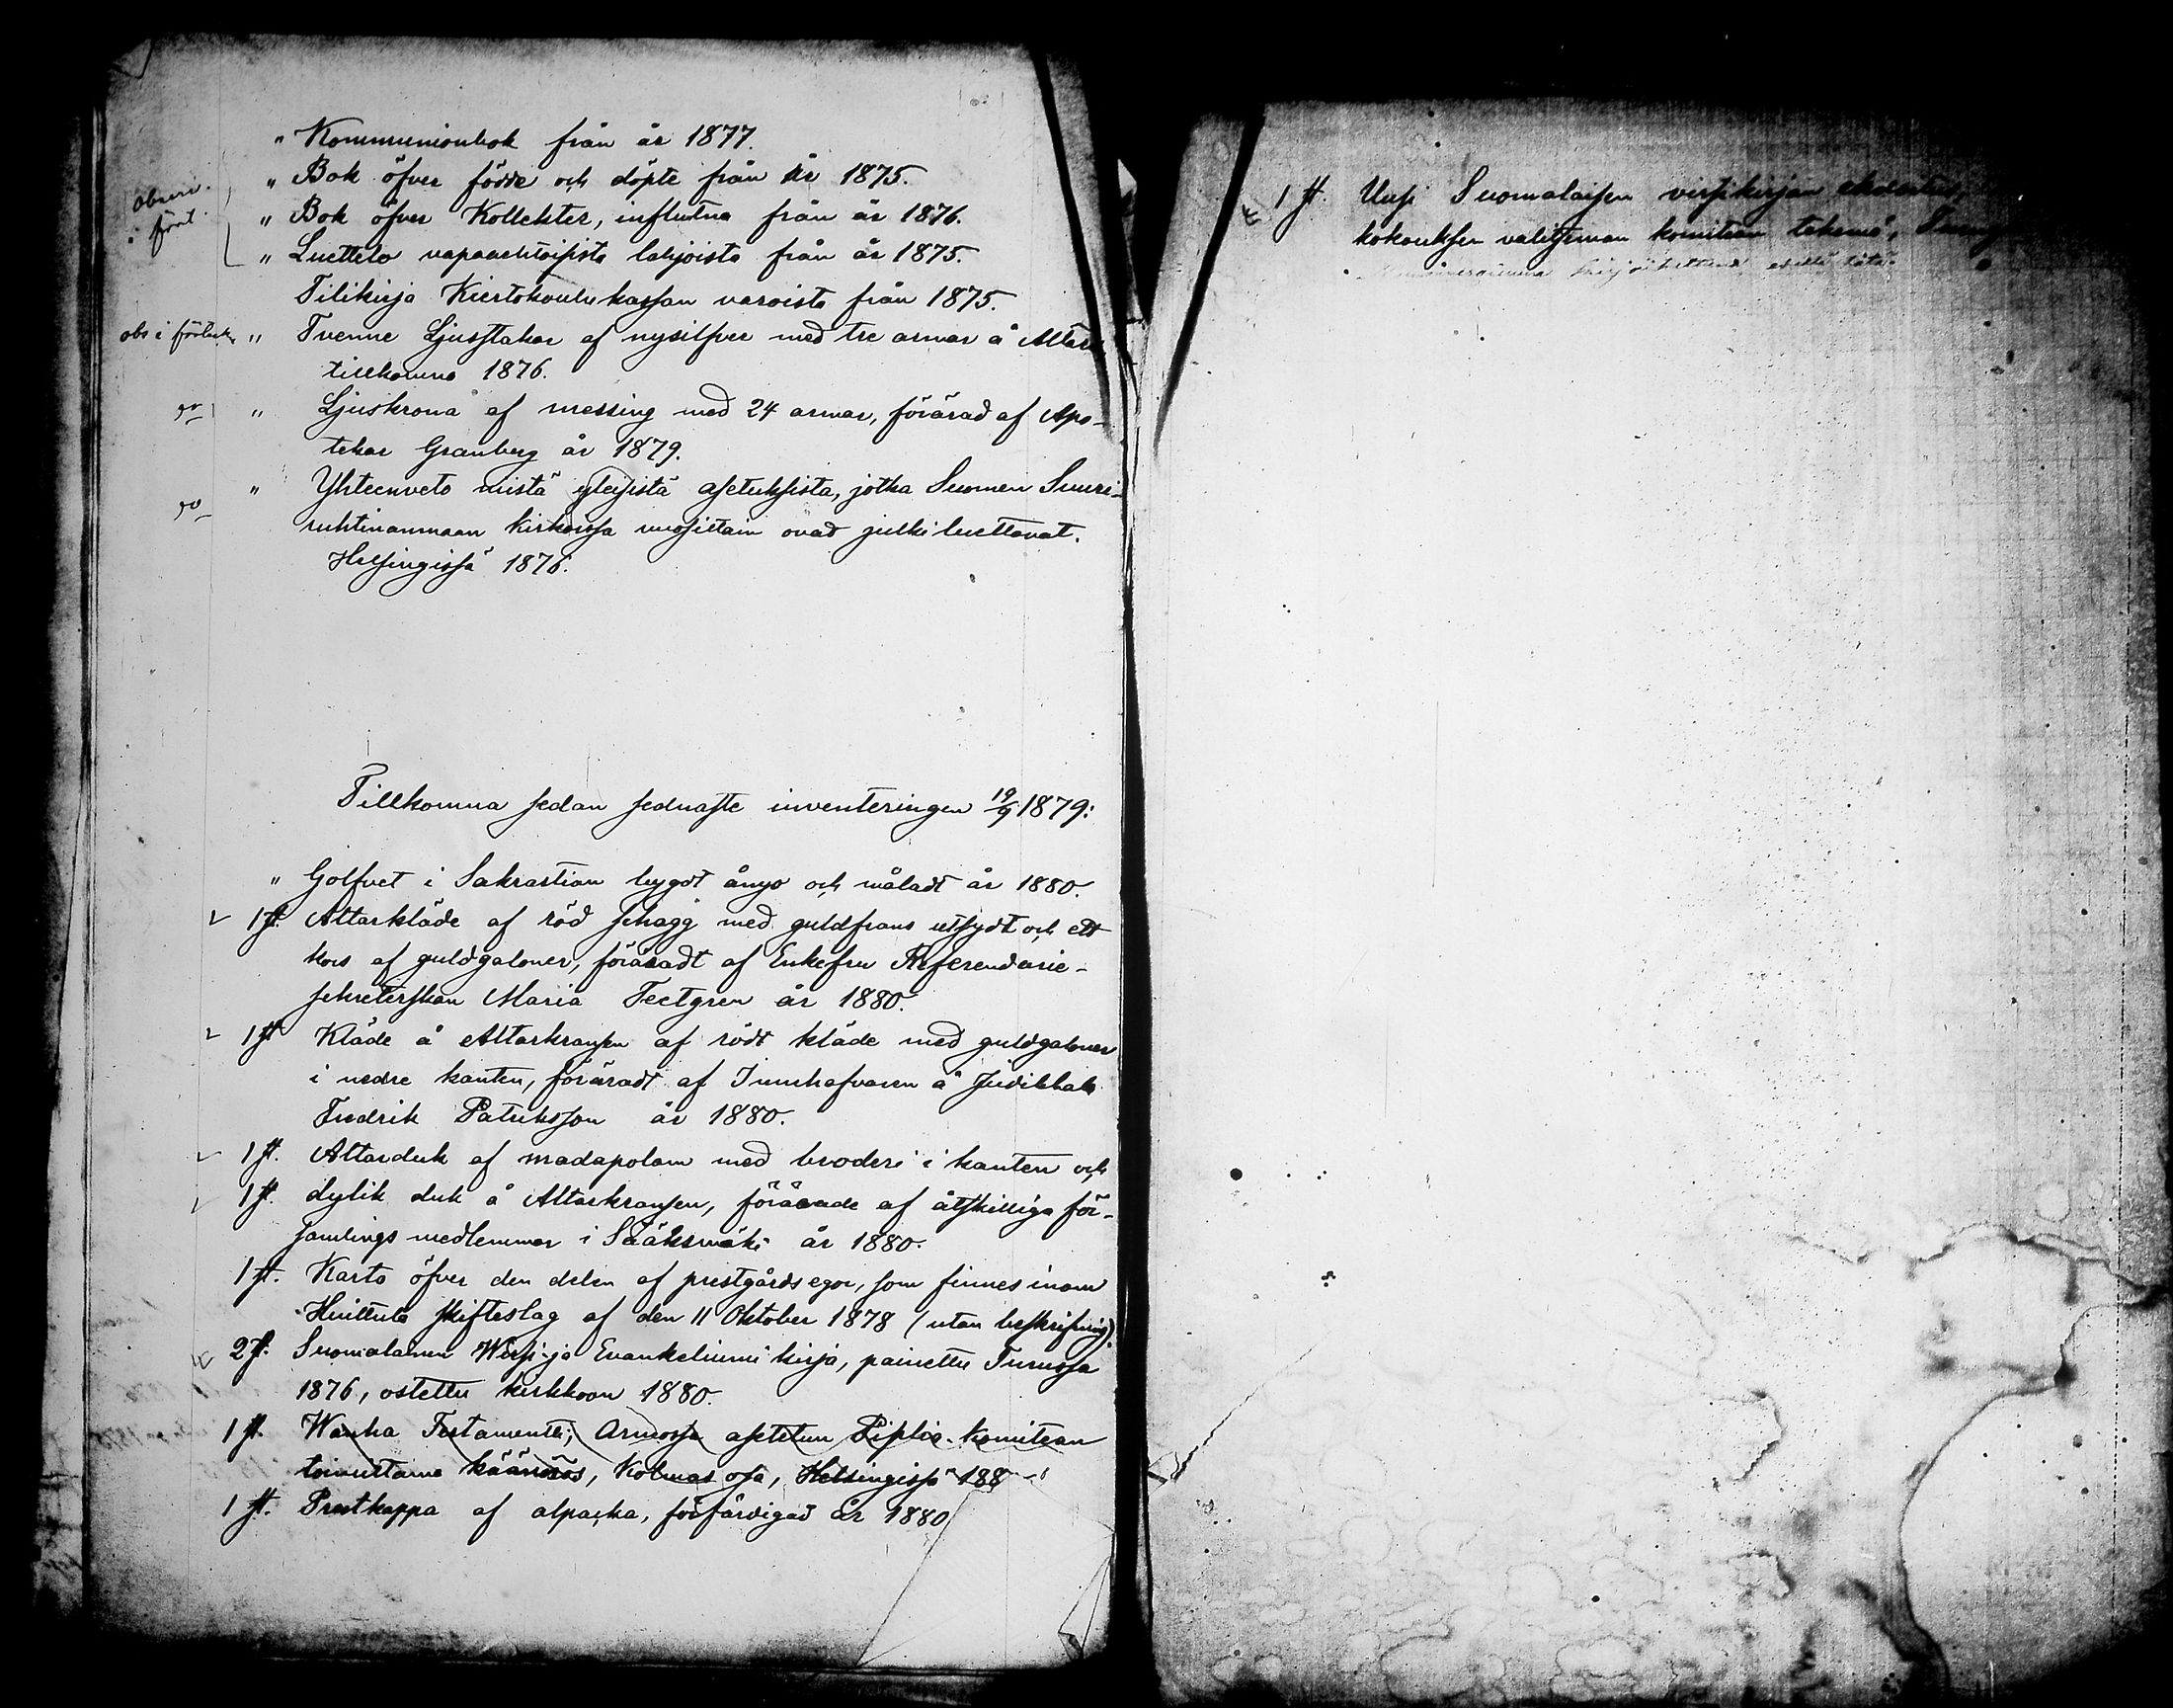 " Kommunionbok från år 1877.
" Bok öfver födde och döpte från år 1875.
observ.
" Bok öfver Kollekter, influtna från år 1876.
i fört.
" Luettelo vapaaehtoisista lahjoista från år 1875.
Tilikirja Kiertokoulukassan varoista från 1875.
obs i förteckn " Tvenne Ljusstakar af nysilfver med tre armar å Altaret
tillkomna 1876.
" Ljuskrona af messing med 24 armar, förärad af Apo-
tekar Granberg år 1879.
" Yhteenveto niistä yleisistä asetuksista, jotka Suomen Suuri-
ruhtinanmaan kirkoissa vuosittain ovat julki luettavat.
Helsingissä 1876.
Tillkomna sedan sednaste inventeringen 19/9 1879:
" Golfvet i Sakrastian bygdt ånyo och måladt år 1880.
1 st. Altarkläde af röd schagg med guldfrans utsydt och ett
kors af guldgaloner, föräradt af Enkefru Referendarie-
sekreterskan Maria Tectgren år 1880.
1 st Kläde å Altarkransen af rödt kläde med guldgaloner
i nedre kanten, föräradt af Innehafvaren å Judikkala
Fredrik Patriksson år 1880.
1 st. Altarduk af madapolam med broderi i kanten och
1 st. dylik duk å Altarkransen, förärade af åtskilliga för-
samlings medlemmar i Sääksmäki år 1880.
1 st. Karta öfver den delen af prestgårds egor, som finnes inom
Huittula skifteslag af den 11 Oktober 1878 (utan beskrifning).
2 st. Suomalainen Wirsi- ja Evankeliumi kirja, painettu Turussa
1876, ostettu kirkkoon 1880.
1 st. Wanha Testamentti, Armossa asetetun Piplia-Komitean
toimittama käännös, Kolmas osa, Helsingissä 188
1 st. Prestkappa af alpacka, förfärdigad år 1880
1 st. Uusi Suomalaisen virsikirjan ehdoitus,
kokouksen valitseman komitean tekemä,